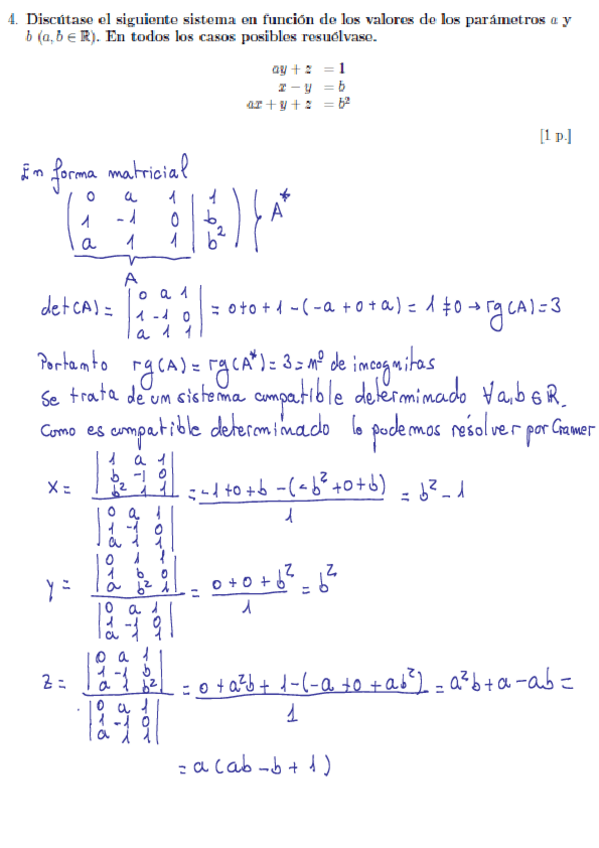 4. Discútase el siguiente sistema en función de los valores de los parámetros a y
b (a, b ∈ ℝ). En todos los casos posibles resuélvase.
ay + z = 1
x − y = b
ax + y + z = b²
[1 p.]
En forma matricial
0 a 1 | 1
1 -1 0 | b
a 1 1 | b²
} A*
A
det(A) = |0 a 1; 1 -1 0; a 1 1| = 0+0+1-(-a+0+a) = 1 ≠ 0 → rg(A)=3
Portanto rg(A) = rg(A*) = 3 = nº de incognitas
Se trata de un sistema compatible determinado ∀a,b∈R.
Como es compatible determinado lo podemos resolver por Cramer
x = |1 a 1; b -1 0; b² 1 1| / |0 a 1; 1 -1 0; a 1 1| = -1+0+b-(-b²+0+b) / 1 = b²-1
y = |0 1 1; 1 b 0; a b² 1| / |0 a 1; 1 -1 0; a 1 1| = 0+0+b² / 1 = b²
z = |0 a 1; 1 -1 b; a 1 b²| / |0 a 1; 1 -1 0; a 1 1| = 0+a²b+1-(-a+0+ab²) / 1 = a²b+a-ab =
= a(ab-b+1)